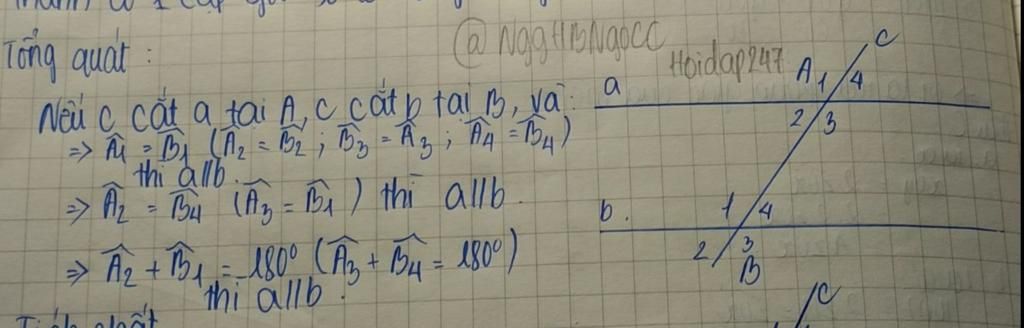 Tổng quát:
@NggHBNgocc
Hoidap247
Nếu c cắt a tại A, c cắt b tại B, và:
=> Â1 = B̂1 (Â2 = B̂2; B̂3 = Â3; Â4 = B̂4)
thì a//b.
=> Â2 = B̂4 (Â3 = B̂1) thì a//b.
=> Â2 + B̂1 = 180° (Â3 + B̂4 = 180°)
thì a//b.
c
A 1 4
a
2 3
b.
1 4
2 3
B
c